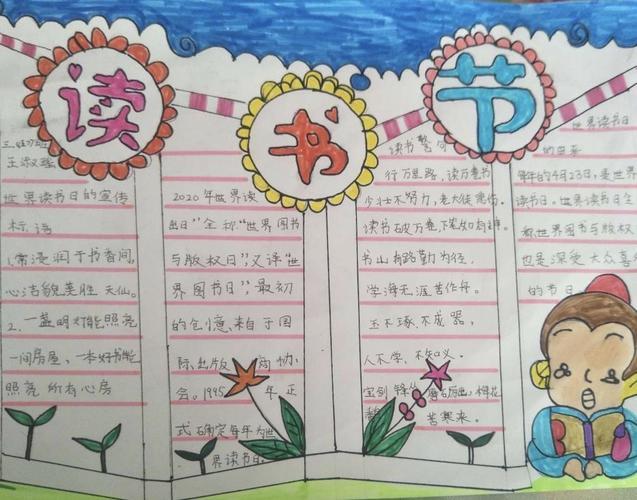 读书节
王淑瑶
世界读书日的宣传
标语
1.常浸润于书香间,
心洁貌美胜天仙。
2.一盏明灯能照亮
一间房屋、一本好书能
照亮所有心房
2020年世界读
出日"全称"世界图书
与版权日",又译"世
界图书日",最初
的创意来自于国
际出版商协
会。1995年正
式确定每年为世
界读书日
读书警句
行万里路,读万卷书
少壮不努力,老大徒悲伤。
读书破万卷,下笔如有神。
书山有路勤为径,
学海无涯苦作舟。
玉不琢、不成器,
人不学、不知义。
宝剑锋从磨砺出,梅花
苦寒来。
世界读书日
的由来
每年的4月23日,是世界
读书日。世界读书日全
称世界图书与版权
也是深受大众喜
的节日。